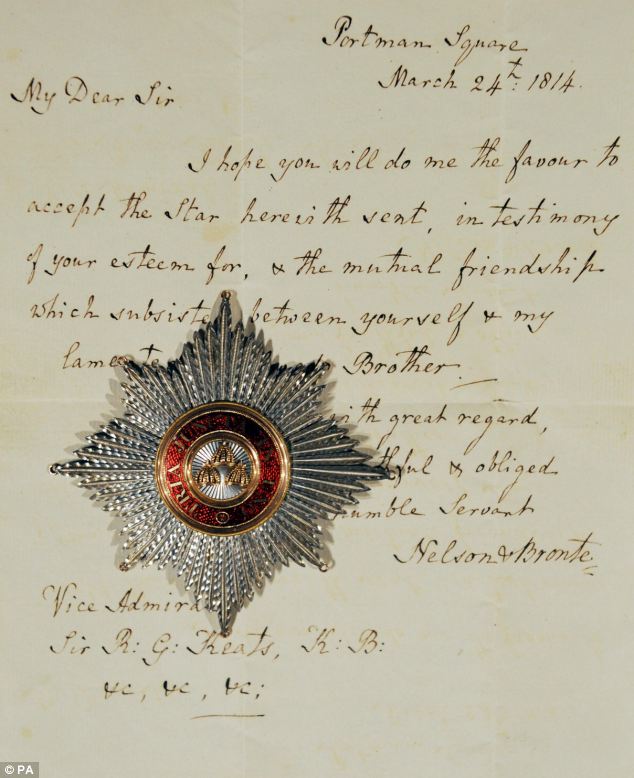 Portman Square
March 24th: 1814.
My Dear Sir
I hope you will do me the favour to
accept the Star herewith sent, in testimony
of your esteem for, & the mutual friendship
which subsiste between yourself & my
lame Brother.
with great regard,
thful & obliged
humble Servant
Nelson & Bronte
Vice Admira
Sir R: G: Keats, K: B:
&c, &c, &c;
TRIA JUN
© PA